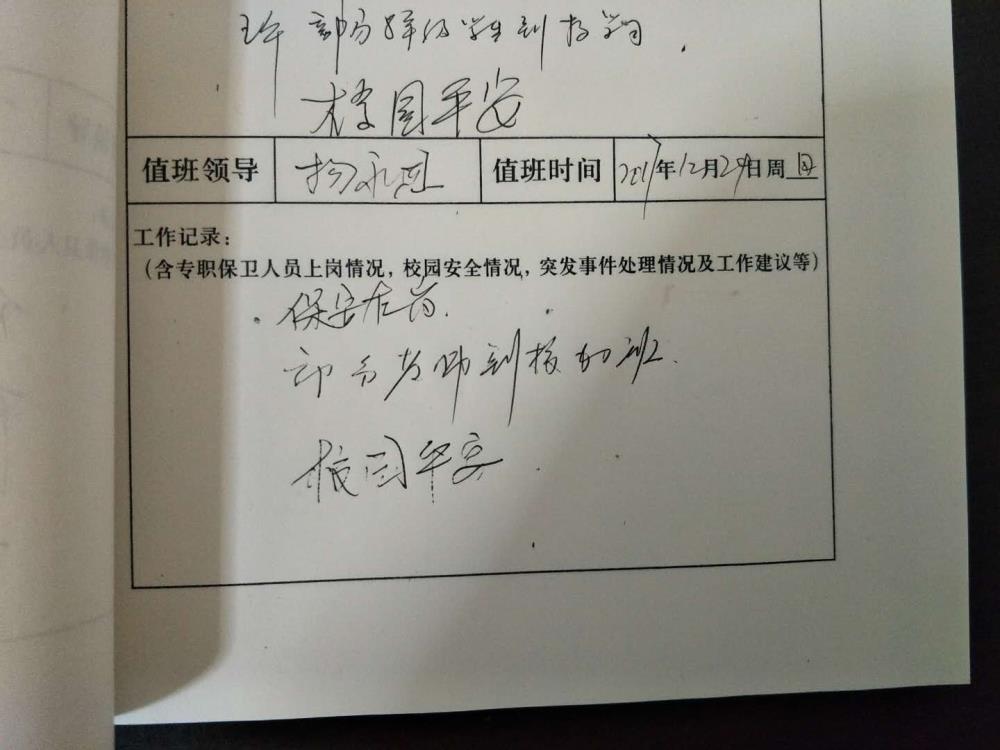 部分 学生到校
校园平安
值班领导 杨永 值班时间 2017年12月24日周日
工作记录：
（含专职保卫人员上岗情况，校园安全情况，突发事件处理情况及工作建议等）
保安在岗.
部分老师到校加班.
校园平安